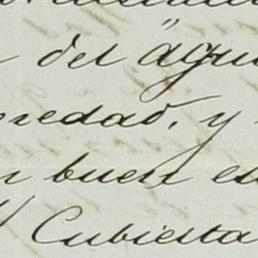 del agu
redad, y
buen es
Cubierta